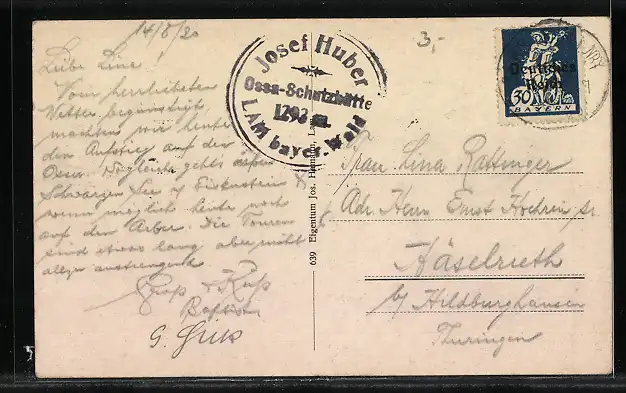 14/8/20
3,-
Liebe Lina!
Vom herrlichsten
Wetter begünstigt,
machten wir heute
den Aufstieg auf den
Osser. Sogleich gehts
Schwarzen See
wenn möglich heute noch
auf den Arber. Die Touren
sind etwas lang aber nicht
allzu anstrengend.
Gruß & Kuß
Josef Huber
Ossa-Schutzhütte
1293 m.
LAM bayer. Wald
639 Eigentum Jos.
Deutsches
Reich
30
BAYERN
Frau Lina Rattinger
Adr. Herrn Ernst sr.
Häselrieth
b/ Hildburghausen
Thüringen